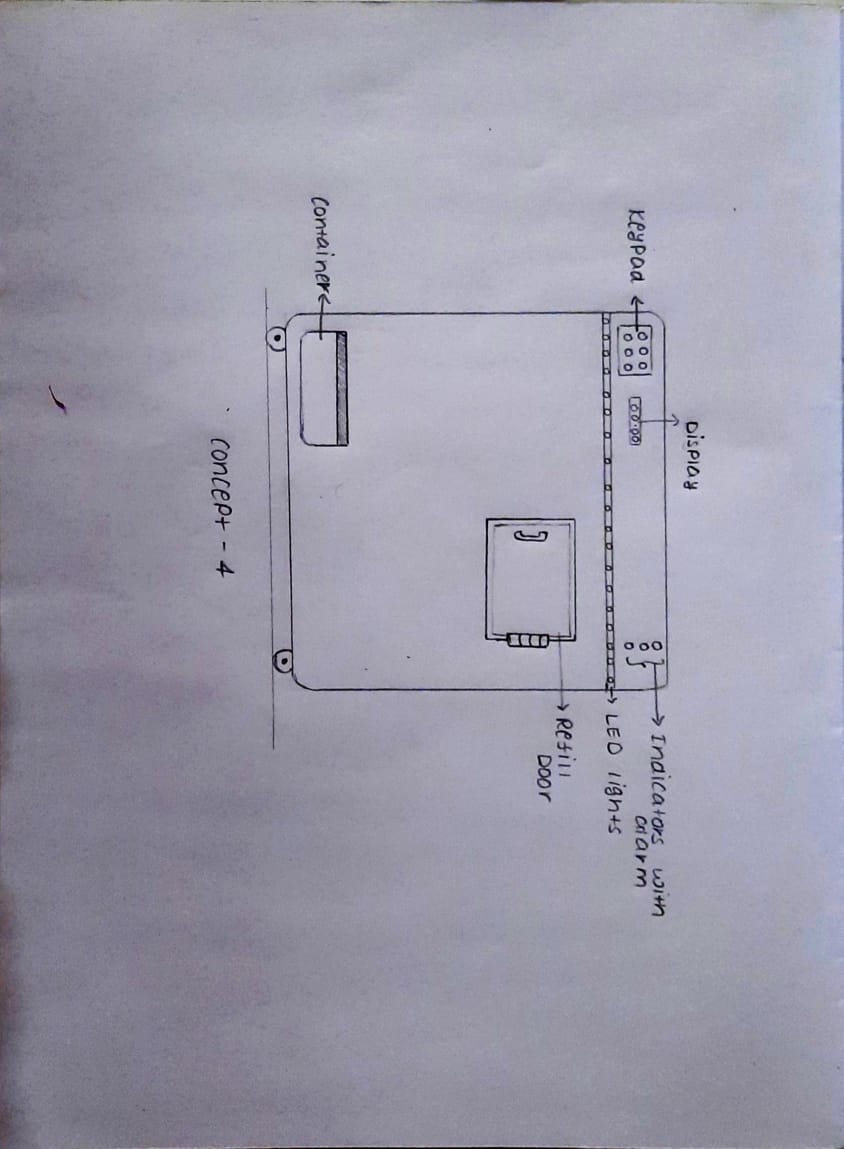 Display
Keypad
Indicators with
alarm
LED lights
Refill
Door
Container
Concept - 4